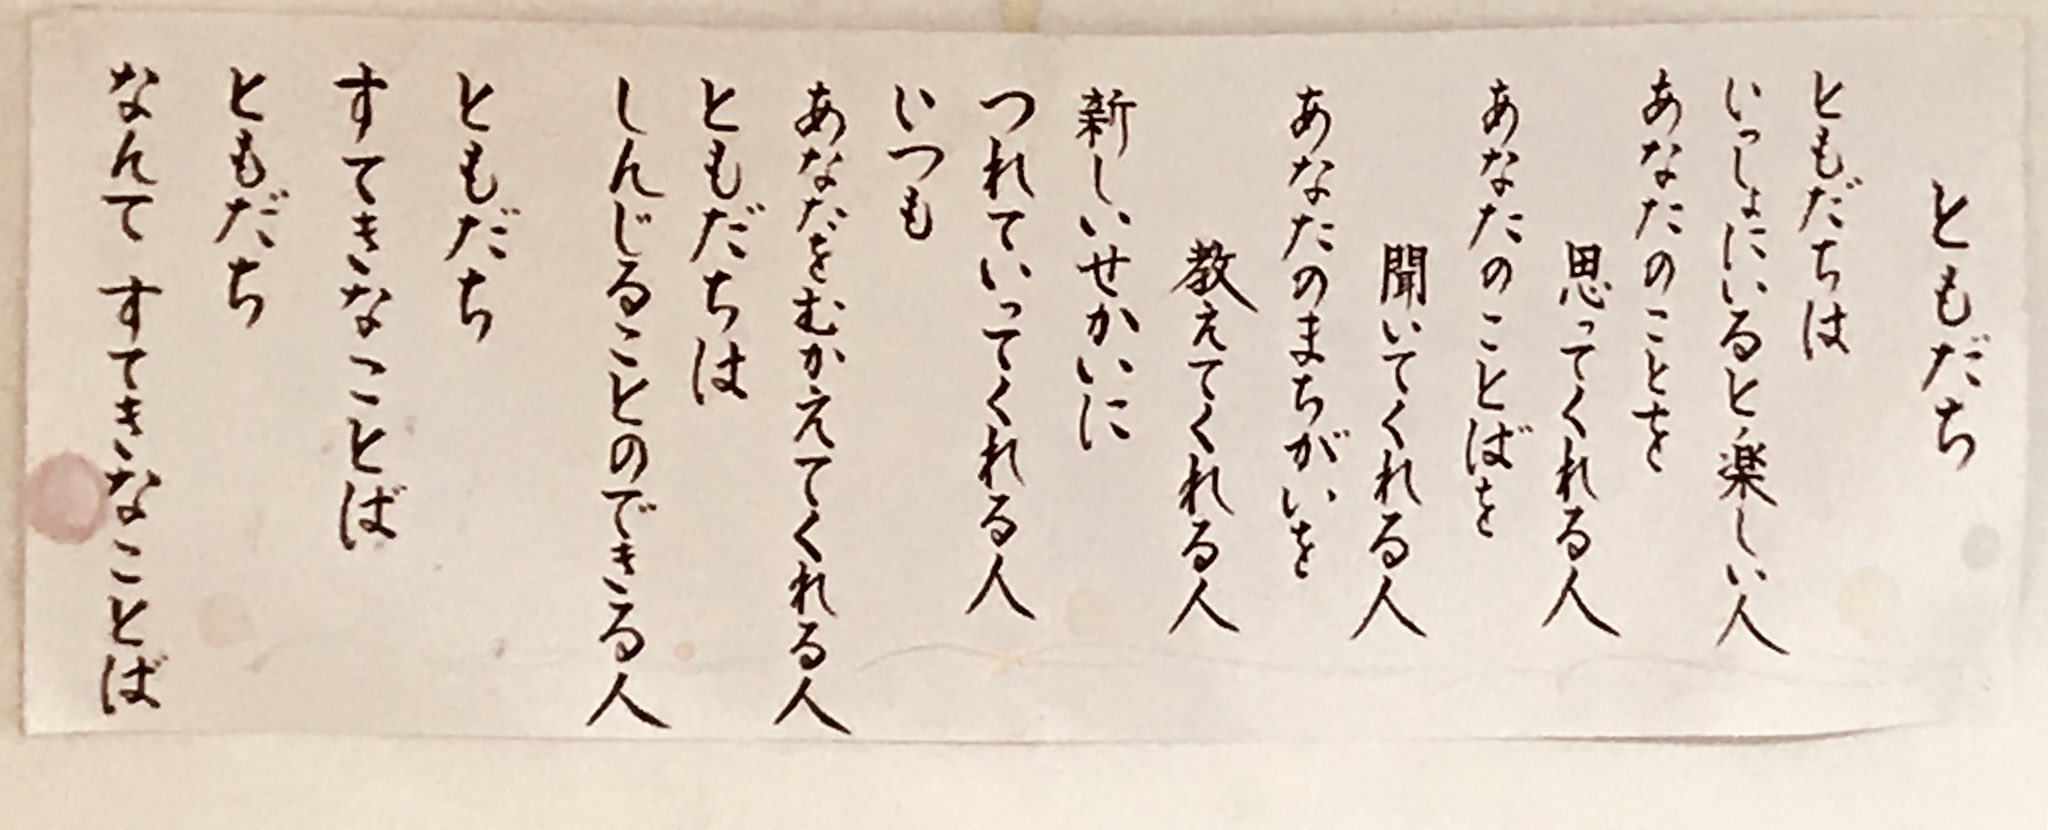 ともだち
ともだちは
いっしょにいると楽しい人
あなたのことを
思ってくれる人
あなたのことばを
聞いてくれる人
あなたのまちがいを
教えてくれる人
新しいせかいに
つれていってくれる人
いつも
あなたをむかえてくれる人
ともだちは
しんじることのできる人
ともだち
すてきなことば
ともだち
なんて すてきなことば